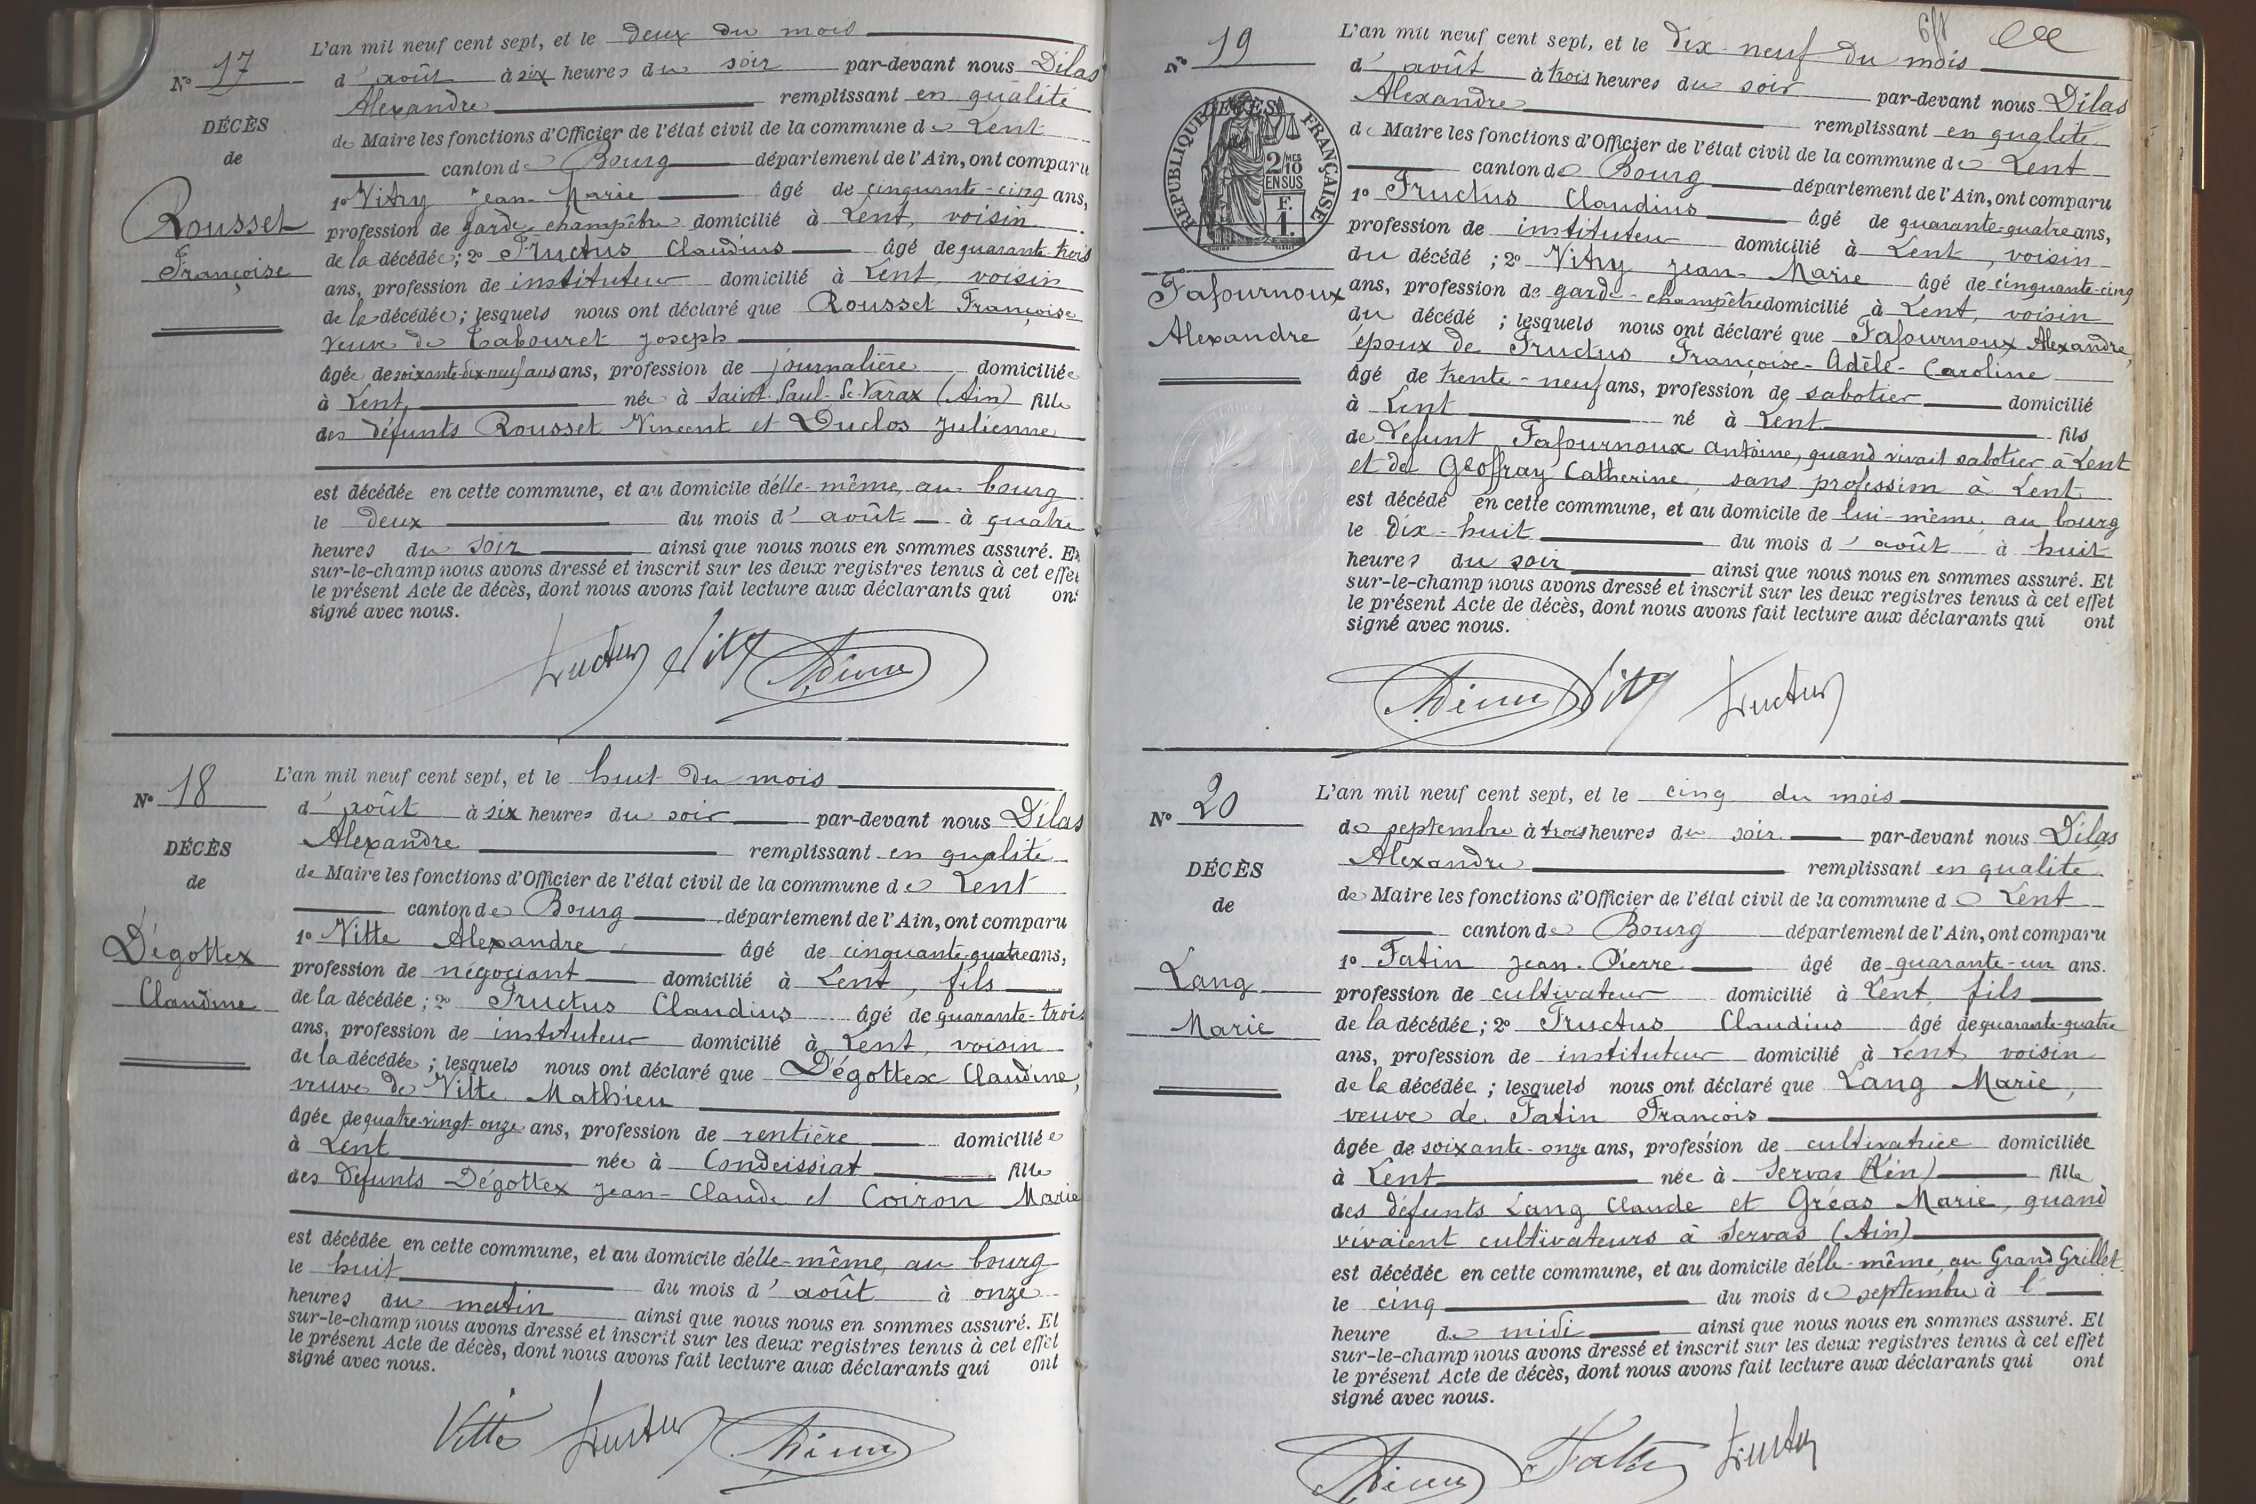 N° 17
DÉCÈS
de
Rousset
Françoise
L'an mil neuf cent sept, et le deux du mois
d'août à six heures du soir par-devant nous Dilas
Alexandre remplissant en qualité
de Maire les fonctions d'Officier de l'état civil de la commune de Lent
canton de Bourg département de l'Ain, ont comparu
1° Vitry Jean-Marie âgé de cinquante-cinq ans,
profession de garde champêtre domicilié à Lent, voisin
de la décédée; 2° Fructus Claudius âgé de quarante-trois
ans, profession de instituteur domicilié à Lent, voisin
de la décédée; lesquels nous ont déclaré que Rousset Françoise
veuve de Tabouret Joseph
âgée de soixante-dix-neuf ans ans, profession de journalière domiciliée
à Lent née à Saint-Paul-de-Varax (Ain) fille
des défunts Rousset Vincent et Duclos Julienne
est décédée en cette commune, et au domicile d'elle-même, au bourg
le deux du mois d'août à quatre
heures du soir ainsi que nous nous en sommes assuré. Et
sur-le-champ nous avons dressé et inscrit sur les deux registres tenus à cet effet
le présent Acte de décès, dont nous avons fait lecture aux déclarants qui ont
signé avec nous.
Fructus Vitry
N° 18
DÉCÈS
de
Dégottex
Claudine
L'an mil neuf cent sept, et le huit du mois
d'août à six heures du soir par-devant nous Dilas
Alexandre remplissant en qualité
de Maire les fonctions d'Officier de l'état civil de la commune de Lent
canton de Bourg département de l'Ain, ont comparu
1° Vitte Alexandre âgé de cinquante-quatre ans,
profession de négociant domicilié à Lent, fils
de la décédée; 2° Fructus Claudius âgé de quarante-trois
ans, profession de instituteur domicilié à Lent, voisin
de la décédée; lesquels nous ont déclaré que Dégottex Claudine,
veuve de Vitte Mathieu
âgée de quatre-vingt-onze ans, profession de rentière domiciliée
à Lent née à Condeissiat fille
des défunts Dégottex Jean-Claude et Coiron Marie
est décédée en cette commune, et au domicile d'elle-même, au bourg
le huit du mois d'août à onze
heures du matin ainsi que nous nous en sommes assuré. Et
sur-le-champ nous avons dressé et inscrit sur les deux registres tenus à cet effet
le présent Acte de décès, dont nous avons fait lecture aux déclarants qui ont
signé avec nous.
Vitte Fructus
N° 19
DÉCÈS
RÉPUBLIQUE FRANÇAISE
2/10 MES
EN SUS
F.
1.
Fafournoux
Alexandre
L'an mil neuf cent sept, et le dix-neuf du mois
d'août à trois heures du soir par-devant nous Dilas
Alexandre remplissant en qualité
de Maire les fonctions d'Officier de l'état civil de la commune de Lent
canton de Bourg département de l'Ain, ont comparu
1° Fructus Claudius âgé de quarante-quatre ans,
profession de instituteur domicilié à Lent, voisin
du décédé; 2° Vitry Jean-Marie âgé de cinquante-cinq
ans, profession de garde-champêtre domicilié à Lent, voisin
du décédé; lesquels nous ont déclaré que Fafournoux Alexandre,
époux de Fructus Françoise-Adèle-Caroline
âgé de trente-neuf ans, profession de sabotier domicilié
à Lent né à Lent fils
de défunt Fafournoux Antoine, quand vivait sabotier à Lent
et de Geoffray Catherine, sans profession à Lent
est décédé en cette commune, et au domicile de lui-même, au bourg
le dix-huit du mois d'août à huit
heures du soir ainsi que nous nous en sommes assuré. Et
sur-le-champ nous avons dressé et inscrit sur les deux registres tenus à cet effet
le présent Acte de décès, dont nous avons fait lecture aux déclarants qui ont
signé avec nous.
Vitry Fructus
N° 20
DÉCÈS
de
Lang
Marie
L'an mil neuf cent sept, et le cinq du mois
de septembre à trois heures du soir par-devant nous Dilas
Alexandre remplissant en qualité
de Maire les fonctions d'Officier de l'état civil de la commune de Lent
canton de Bourg département de l'Ain, ont comparu
1° Fatin Jean-Pierre âgé de quarante-un ans.
profession de cultivateur domicilié à Lent, fils
de la décédée; 2° Fructus Claudius âgé de quarante-quatre
ans, profession de instituteur domicilié à Lent voisin
de la décédée; lesquels nous ont déclaré que Lang Marie,
veuve de Fatin François
âgée de soixante-onze ans, profession de cultivatrice domiciliée
à Lent née à Servas (Ain) fille
des défunts Lang Claude et Gréas Marie, quand
vivaient cultivateurs à Servas (Ain)
est décédée en cette commune, et au domicile d'elle-même, au Grand Grillet
le cinq du mois de septembre à l'
heure de midi ainsi que nous nous en sommes assuré. Et
sur-le-champ nous avons dressé et inscrit sur les deux registres tenus à cet effet
le présent Acte de décès, dont nous avons fait lecture aux déclarants qui ont
signé avec nous.
Fatin Fructus